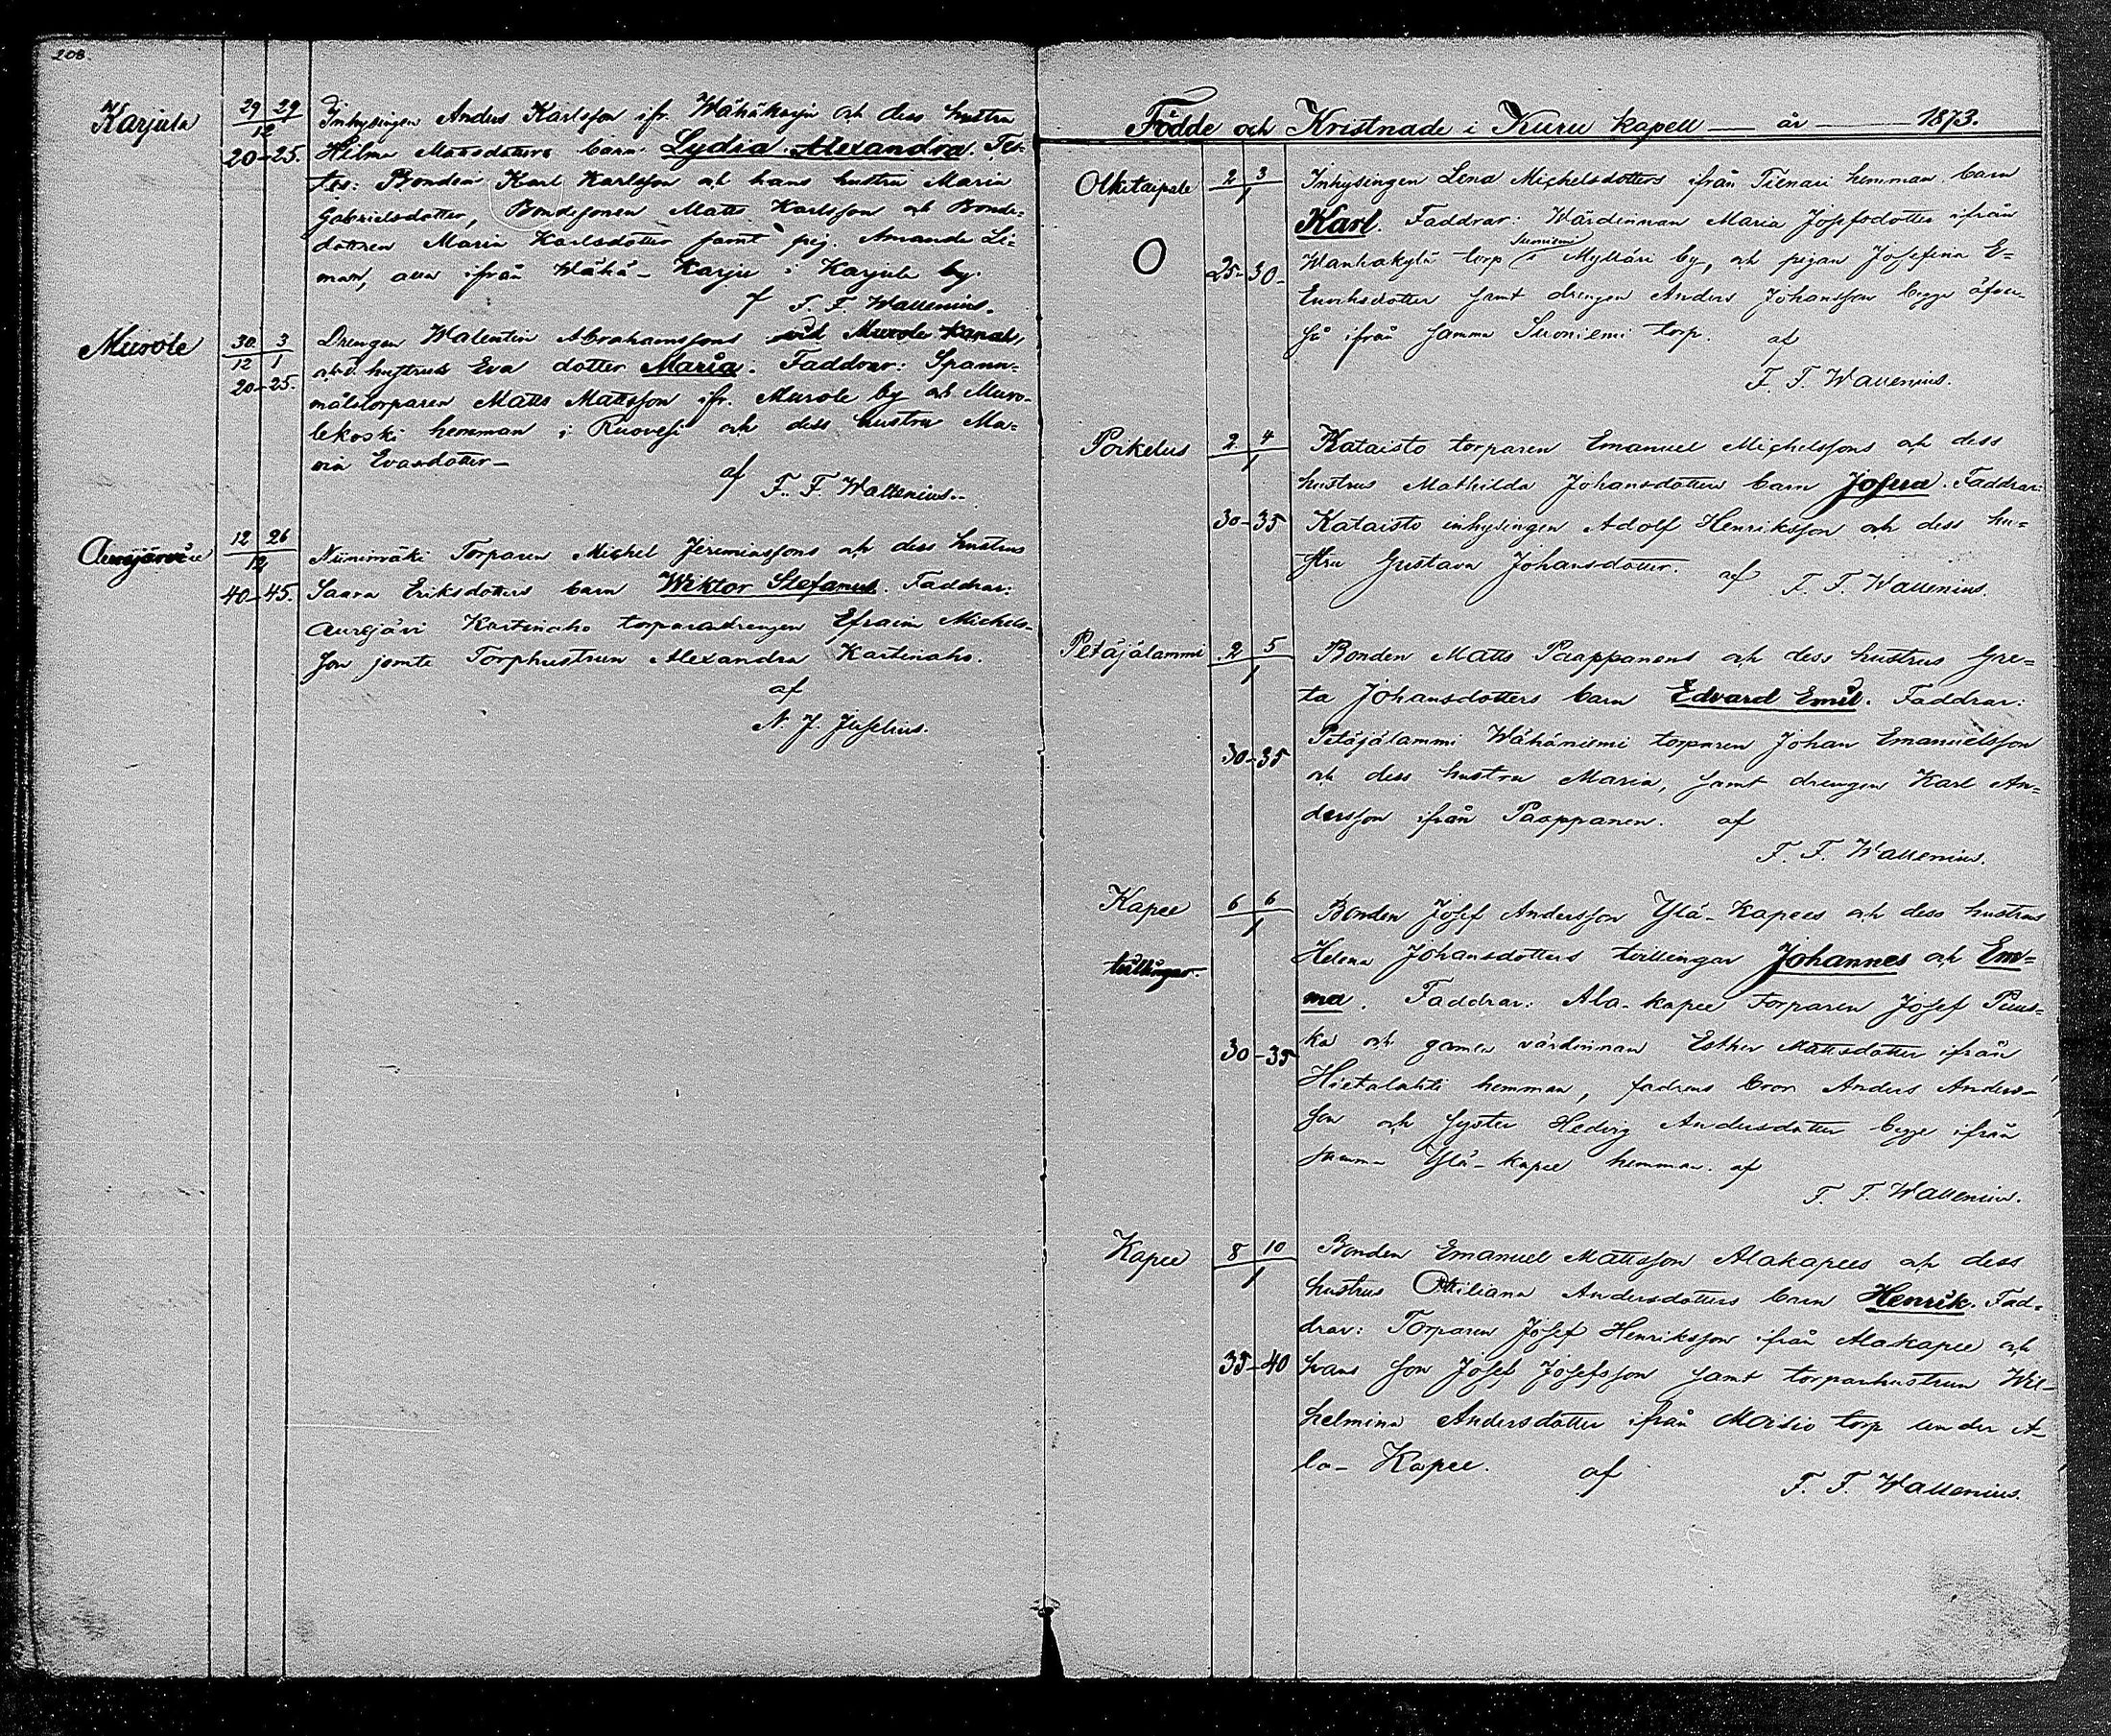 208.
Karjula
29 29
12
20-25.
Inhysingen Anders Karlsson ifr. Wähäkarju och dess hustru
Hilma Mattsdotters barn Lydia Alexandra. Tes-
tes: Bonden Karl Karlsson och hans hustru Maria
Gabrielsdotter, Bondesonen Matts Karlsson och Bonde-
dottren Maria Karlsdotter samt pig. Amanda Li-
man, alla ifrån Wähä-Karju i Karjula by.
af F. F. Wallenius.
Murole
30 3
12 1
20-25.
Drengen Walentin Abrahamssons vid Murole Kanal,
och d. hustrus Eva dotter Maria. Faddrar: Spann-
målstorparen Matts Mattsson ifr. Murole by och Muro-
lekoski hemman i Ruovesi och dess hustru Ma-
ria Evasdotter-
af F. F. Wallenius.
Aurejärvi
12 26
12
40-45.
Niinimäki Torparen Michel Jeremiassons och dess hustrus
Saara Eriksdotters barn Wiktor Stefanus. Faddrar:
Aurejärvi Kortinaho torparedrengen Efraim Michels-
son jemte Torphustrun Alexandra Kortinaho.
af
N. J. Juselius.
Födde och Kristnade i Kuru kapell — år — 1873.
Olkitaipale
O
2 3
1
25-30-
Inhysingen Lena Michelsdotters ifrån Tienari hemman barn
Karl. Faddrar: Wärdinnan Maria Josefsdotter ifrån
Suoniemi
Wanhakylä torp i Mylläri by, och pigan Josefina E-
Enoksdotter samt drengen Anders Johansson begge äfven-
så ifrån samma Suoniemi torp. af
F. F. Wallenius.
Poikelus
2 4
1
30-35
Kataisto torparen Emanuel Michelssons och dess
hustrus Mathilda Johansdotters barn Josua. Faddrar:
Kataisto inhysingen Adolf Henriksson och dess hu-
stru Gustava Johansdotter. af F. F. Wallenius.
Petäjälammi
2 5
1
30-35
Bonden Matts Paappanens och dess hustrus Gre-
ta Johansdotters barn Edvard Emil. Faddrar:
Petäjälammi Wähäniemi torparen Johan Emanuelsson
och dess hustru Maria, samt drengen Karl An-
dersson ifrån Paappanen. af
F. F. Wallenius.
Kapee
tvillingar.
6 6
1
30-35
Bonden Josef Andersson Ylä-Kapees och dess hustrus
Helena Johansdotters tvillingar Johannes och Em-
ma. Faddrar: Ala-kapee torparen Josef Puus-
ka och gamla värdinnan Esther Mattsdotter ifrån
Hietalahti hemman, fadrens bror Anders Anders-
son och syster Hedvig Andersdotter begge ifrån
samma Ylä-kapee hemman. af
F. F. Wallenius.
Kapee
8 10
1
35-40
Bonden Emanuel Mattsson Alakapees och dess
hustrus Ottiliana Andersdotters barn Henrik. Fad-
drar: Torparen Josef Henriksson ifrån Alakapee och
hans son Josef Josefsson samt torparhustrun Wil-
helmina Andersdotter ifrån Moisio torp under A-
la-Kapee. af F. F. Wallenius.